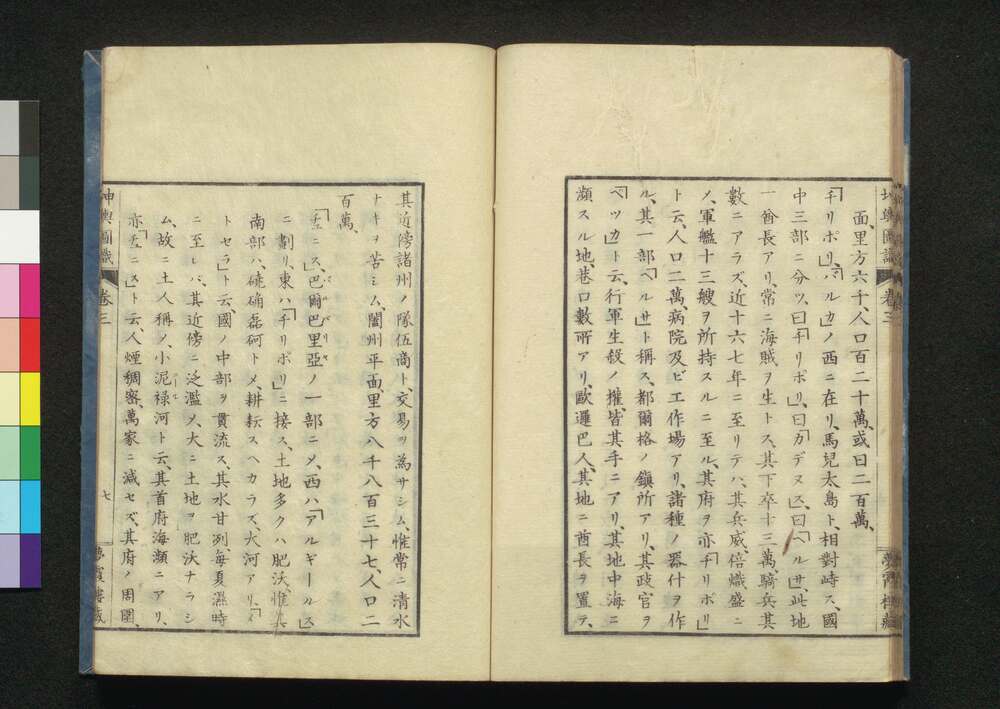 坤輿圖識
卷三
夢霞樓藏
面、里方六千、人口百二十萬、或曰二百萬、
「チリポリ」、「バルカ」ノ西ニ在リ、馬兒太島ト、相對峙ス、國
中三部ニ分ツ、曰「チリポリ」、曰「カデヌス」、曰「ヘルサ」、此地
一酋長アリ、常ニ海賊ヲ生トス、其下卒十三萬騎兵其
數ニアラズ、近十六七年ニ至リテハ、其兵威、倍熾盛ニ
〆、軍艦十三艘ヲ所持スルニ至ル、其府ヲ亦「チリポリ」
ト云、人口二萬、病院及ビ工作場アリ、諸種ノ器什ヲ作
ル、其一部「ヘルサ」ト稱ス、都爾格ノ鎮所アリ、其政官ヲ
「ベッカ」ト云、行軍生殺ノ權、皆其手ニアリ、其地中海ニ
瀕スル地、巷口數所アリ、歐邏巴人、其地ニ酋長ヲ置テ、
其近傍諸州ノ隊伍商ト、交易ヲ為サシム、惟常ニ清水
ナキヲ苦ミム、闔州平面、里方八千八百三十七、人口二
百萬、
「チュニス」、巴爾巴里亞ノ一部ニ〆、西ハ「アルギールス」
ニ劃リ、東ハ「チリポリ」ニ接ス、土地多クハ肥沃、惟其
南部ハ、磽确磊砢ト〆、耕耘スヘカラズ、大河アリ、「メ
トセラ」ト云、國ノ中部ヲ貫流ス、其水甘冽、每夏濕時
ニ至レバ、其近傍ニ泛濫〆、大ニ土地ヲ肥沃ナラシ
ム、故ニ土人稱〆、小泥祿河ト云、其首府海瀕ニアリ、
亦「チュニス」ト云、人煙稠密、萬家ニ減セズ、其府ノ周圍、
坤輿圖識
卷三
七
夢霞樓藏